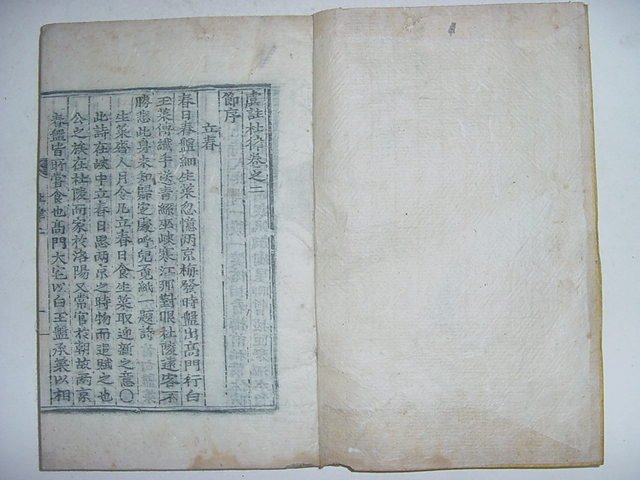 虞註杜律卷之二
節序
立春
春日春盤細生菜忽憶两京梅發時盤出高門行白
玉菜傳纖手送青絲巫峽寒江那對眼杜陵遠客不
勝悲此身未知歸定處呼兒覓紙一題詩春盤菜
生菜齊人月令凢立春日食生菜取迎新之意〇
此詩在峽中立春日思两京之時物而遂賦之也
公之族在杜陵而家於洛陽又常官於朝故两京
春盤皆所嘗食也高門大宅以白玉盤承菜以相